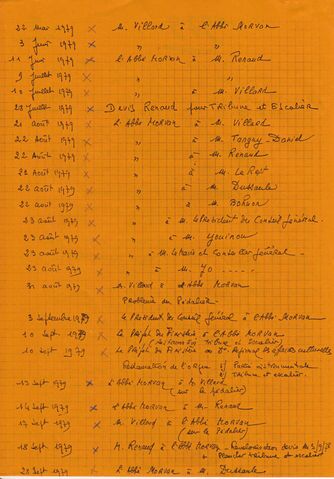 22 Mai 1979 x M. Villard à l'Abbé MORVAN
3 Juin 1979 x " "
11 Juin 1979 x l'Abbé MORVAN à M. Renaud
9 Juillet 1979 x " "
10 Juillet 1979 x " à M. Villard
20 Juillet 1979 x DEVIS Renaud pour TRIBUNE et ESCALIER
21 août 1979 x L'Abbé MORVAN à M. Villard
22 Août 1979 x " à M. Tanguy Daniel
22 Août 1979 x " à M. Renaud
22 Août 1979 x " à M.
22 août 1979 x " à M. Dussaule
22 août 1979 x " à M.
23 août 1979 x " à M. le Président du Conseil général
23 Août 1979 x " à M. Youinou
23 août 1979 x " à M. le Maire et Conseiller général
23 août 1979 x " à M. Yo
31 août 1979 x M. Villard à l'Abbé MORVAN
Problème du Pédalier
3 Septembre 1979 x Le Président du Conseil général à l'Abbé MORVAN
10 Sept 1979 x Le Préfet du Finistère à l'Abbé MORVAN
(Tribune et escalier)
10 Sept 1979 x Le Préfet du Finistère au Dr Régional Affaires culturelles
Restauration de l'orgue a) Partie instrumentale
b) Tribune et escalier
13 Sept 1979 x L'Abbé MORVAN à M. Villard
(sur le pédalier)
14 Sept 1979 x l'Abbé MORVAN à M. Renaud
17 Sept 1979 x M. Villard à l'Abbé MORVAN
(sur le pédalier)
18 Sept 1979 x M. Renaud à l'Abbé MORVAN devis du
+ Plancher tribune et escalier
28 Sept 1979 x L'Abbé MORVAN à M. Dussaule